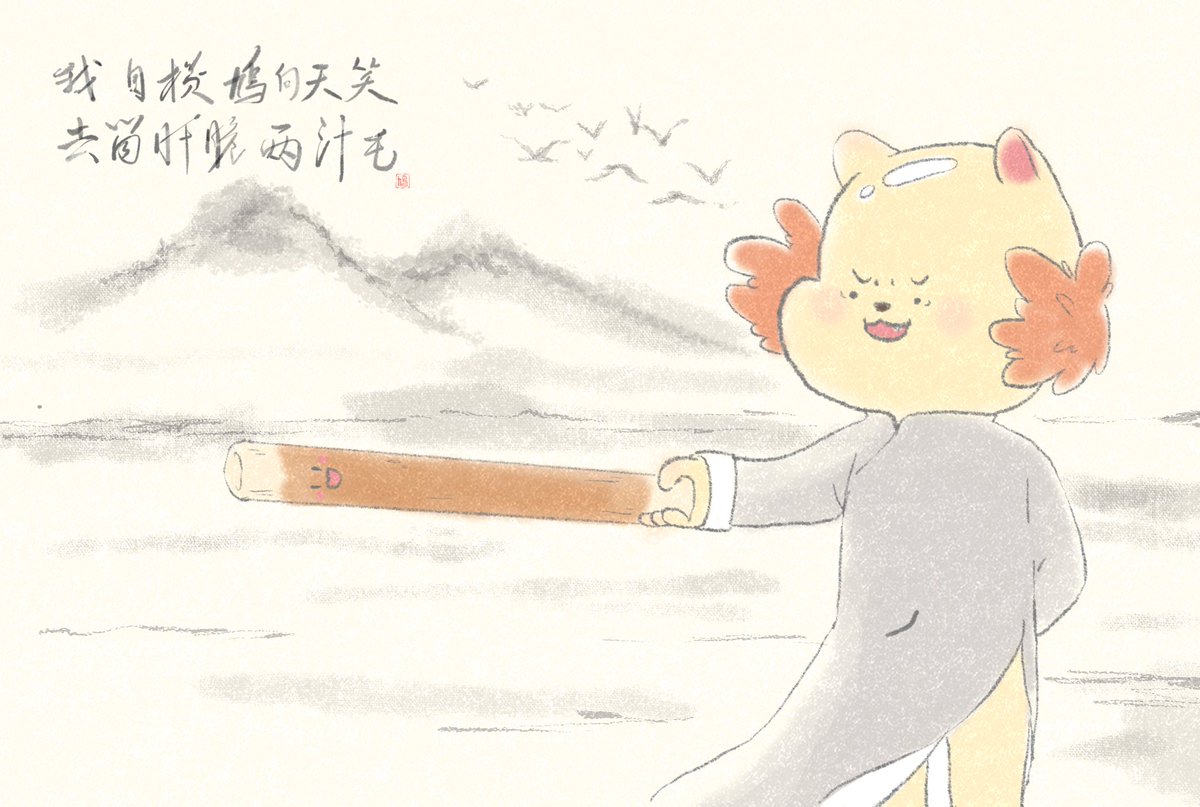 我自横鳩向天笑
去留肝膽两汁毛